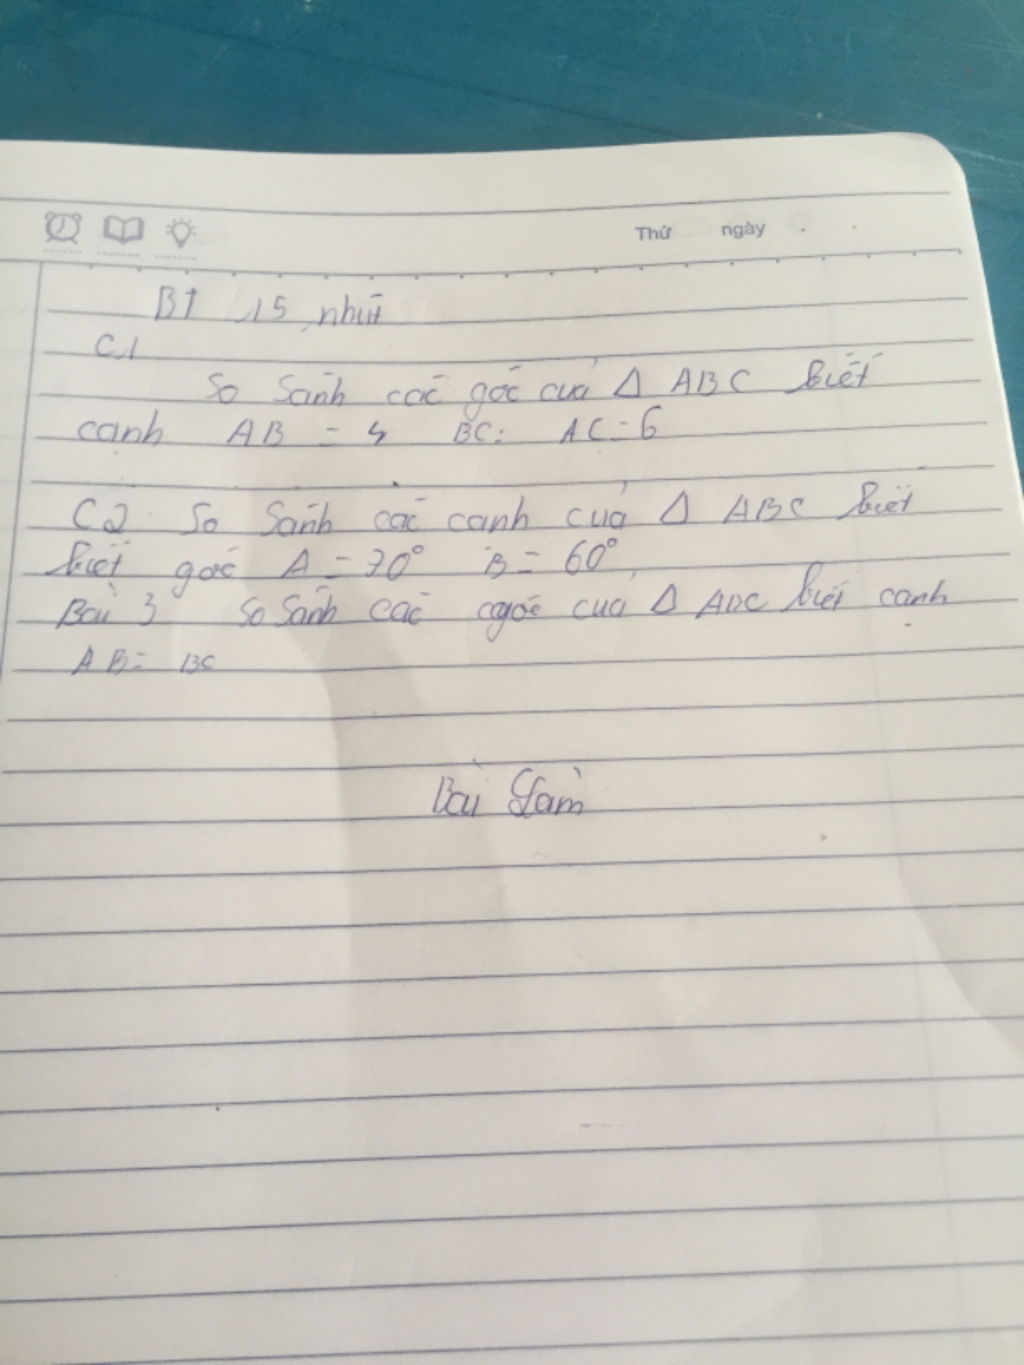 Thứ ngày
BT 15 phút
C1
So sánh các góc của Δ ABC biết
cạnh AB = 4 BC: AC = 6
C2 So sánh các cạnh của Δ ABC biết
biết góc A = 70° B = 60°
Bài 3 So sánh các cgóc cua Δ ABC biết cạnh
AB = BC
Bài Làm